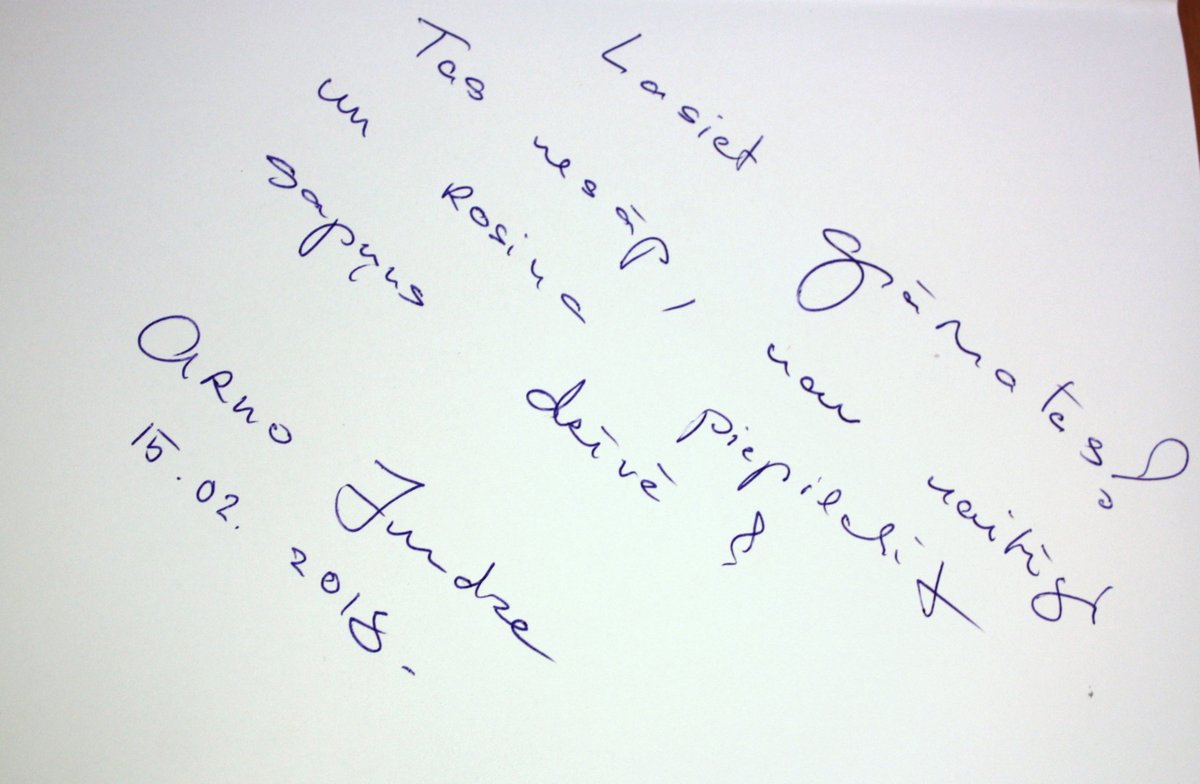 Lasiet grāmatas!
Tas nesāp, nav kaitīgi
un rosina piepildīt
sapņus dzīvē!
Arno Jundze
15.02.2018.